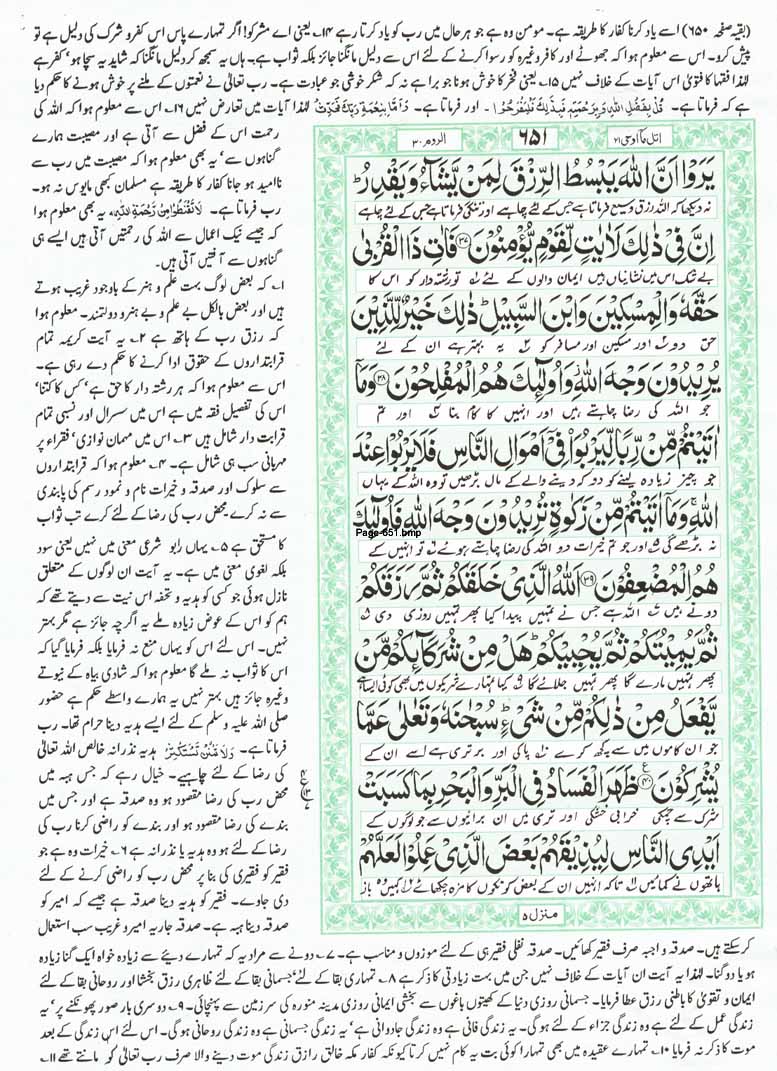 (بقیہ صفحہ ۶۵۰) اسے یاد کرنا کفار کا طریقہ ہے۔ مومن وہ ہے جو ہر حال میں رب کو یاد کرتا رہے ۱۴۔ یعنی اے مشرکو! اگر تمہارے پاس اس کفر و شرک کی دلیل ہے تو
پیش کرو۔ اس سے معلوم ہوا کہ جھوٹے اور کافر وغیرہ کو رسوا کرنے کے لئے اس سے دلیل مانگنا جائز بلکہ ثواب ہے۔ ہاں یہ سمجھ کر دلیل مانگنا کہ شاید یہ سچا ہو' کفر ہے
لہٰذا فقہا کا فتویٰ اس آیات کے خلاف نہیں ۱۵۔ یعنی فخر کا خوش ہونا جو برا ہے نہ کہ شکر خوشی جو عبادت ہے۔ رب تعالیٰ نے نعمتوں کے ملنے پر خوش ہونے کا حکم دیا
ہے کہ فرماتا ہے۔ قُلْ بِفَضْلِ اللّٰہِ وَبِرَحْمَتِہٖ فَبِذٰلِكَ فَلْیَفْرَحُوْا۔ اور فرماتا ہے۔ وَاَمَّا بِنِعْمَةِ رَبِّكَ فَحَدِّثْ لہٰذا آیات میں تعارض نہیں ۱۶۔ اس سے معلوم ہوا کہ اللہ کی
رحمت اس کے فضل سے آتی ہے اور مصیبت ہمارے
گناہوں سے' یہ بھی معلوم ہوا کہ مصیبت میں رب سے
ناامید ہو جانا کفار کا طریقہ ہے مسلمان کبھی مایوس نہ ہو۔
رب فرماتا ہے۔ لَا تَقْنَطُوْا مِنْ رَّحْمَةِ اللّٰہِ، یہ بھی معلوم ہوا
کہ جیسے نیک اعمال سے اللہ کی رحمتیں آتی ہیں ایسے ہی
گناہوں سے آفتیں آتی ہیں۔
۱۔ کہ بعض لوگ بہت علم و ہنر کے باوجود غریب ہوتے
ہیں اور بعض بالکل بے علم و بے ہنر و دولتمند۔ معلوم ہوا
کہ رزق رب کے ہاتھ ہے ۲۔ یہ آیت کریمہ تمام
قرابتداروں کے حقوق ادا کرنے کا حکم دے رہی ہے۔
اس سے معلوم ہوا کہ ہر رشتہ دار کا حق ہے' کس کا کتنا'
اس کی تفصیل فقہ میں ہے اس میں سسرال اور نسبی تمام
قرابت دار شامل ہیں ۳۔ اس میں مہمان نوازی' فقراء پر
مہربانی سب ہی شامل ہے۔ ۴۔ معلوم ہوا کہ قرابتداروں
سے سلوک اور صدقہ و خیرات نام و نمود رسم کی پابندی
سے نہ کرے محض رب کی رضا کے لئے کرے تب ثواب
کا مستحق ہے ۵۔ یہاں ربٰو شرعی معنی میں نہیں یعنی سود
بلکہ لغوی معنی میں ہے۔ یہ آیت ان لوگوں کے متعلق
نازل ہوئی جو کسی کو ہدیہ و تحفہ اس نیت سے دیتے تھے کہ
ہم کو اس کے عوض زیادہ ملے یہ اگرچہ جائز ہے مگر بہتر
نہیں۔ اس لئے اس کو یہاں منع نہ فرمایا بلکہ فرمایا گیا کہ
اس کا ثواب نہ ملے گا معلوم ہوا کہ شادی بیاہ کے نیوتے
وغیرہ جائز ہیں بہتر نہیں یہ ہمارے واسطے حکم ہے حضور
صلی اللہ علیہ وسلم کے لئے ایسے ہدیہ دینا حرام تھا۔ رب
فرماتا ہے۔ وَلَا تَمْنُنْ تَسْتَكْثِرُ ہدیہ نذرانہ خالص اللہ تعالیٰ
کی رضا کے لئے چاہیے۔ خیال رہے کہ جس ہبہ میں
محض رب کی رضا مقصود ہو وہ صدقہ ہے اور جس میں
بندے کی رضا مقصود ہو اور بندے کو راضی کرنا رب کی
رضا کے لئے ہو وہ ہدیہ یا نذرانہ ہے ۶۔ خیرات وہ ہے جو
فقیر کو فقیری کی بنا پر محض رب کو راضی کرنے کے لئے
دی جاوے۔ فقیر کو ہدیہ دینا صدقہ ہے جیسے کہ امیر کو
صدقہ دینا ہبہ ہے۔ صدقہ جاریہ امیر و غریب سب استعمال
اتل ما اوحی ۲۱
۶۵۱
الروم ۳۰
یَرَوْا اَنَّ اللّٰهَ یَبْسُطُ الرِّزْقَ لِمَنْ یَّشَآءُ وَیَقْدِرُ ؕ
نہ دیکھا کہ اللہ رزق وسیع فرماتا ہے جس کے لئے چاہے اور تنگی فرماتا ہے جس کے لئے چاہے
اِنَّ فِیْ ذٰلِكَ لَاٰیٰتٍ لِّقَوْمٍ یُّؤْمِنُوْنَ ۝۳۷ فَاٰتِ ذَا الْقُرْبٰی
بے شک اس میں نشانیاں ہیں ایمان والوں کے لئے تو رشتہ دار کو اس کا
حَقَّهٗ وَالْمِسْكِیْنَ وَابْنَ السَّبِیْلِ ؕ ذٰلِكَ خَیْرٌ لِّلَّذِیْنَ
حق دو اور مسکین اور مسافر کو یہ بہتر ہے ان کے لئے
یُرِیْدُوْنَ وَجْهَ اللّٰهِ وَاُولٰٓىِٕكَ هُمُ الْمُفْلِحُوْنَ ۝۳۸ وَمَاۤ
جو اللہ کی رضا چاہتے ہیں اور انہیں کا کام بنا اور تم
اٰتَیْتُمْ مِّنْ رِّبًا لِّیَرْبُوَا۠ فِیْۤ اَمْوَالِ النَّاسِ فَلَا یَرْبُوْا عِنْدَ
جو چیز زیادہ لینے کو دو کہ دینے والے کے مال بڑھیں تو وہ اللہ کے یہاں
اللّٰهِ ۚ وَمَاۤ اٰتَیْتُمْ مِّنْ زَكٰوةٍ تُرِیْدُوْنَ وَجْهَ اللّٰهِ فَاُولٰٓىِٕكَ
Page-651.bmp
نہ بڑھے گی اور جو تم خیرات دو اللہ کی رضا چاہتے ہوئے تو انہیں کے
هُمُ الْمُضْعِفُوْنَ ۝۳۹ اَللّٰهُ الَّذِیْ خَلَقَكُمْ ثُمَّ رَزَقَكُمْ
دونے ہیں اللہ ہے جس نے تمہیں پیدا کیا پھر تمہیں روزی دی
ثُمَّ یُمِیْتُكُمْ ثُمَّ یُحْیِیْكُمْ ؕ هَلْ مِنْ شُرَكَآىِٕكُمْ مَّنْ
پھر تمہیں مارے گا پھر تمہیں جلائے گا کیا تمہارے شریکوں میں بھی کوئی ایسا ہے
یَّفْعَلُ مِنْ ذٰلِكُمْ مِّنْ شَیْءٍ ؕ سُبْحٰنَهٗ وَتَعٰلٰی عَمَّا
جو ان کاموں میں سے کچھ کرے پاکی اور برتری ہے اسے ان کے
یُشْرِكُوْنَ ۝۴۰ ظَهَرَ الْفَسَادُ فِی الْبَرِّ وَالْبَحْرِ بِمَا كَسَبَتْ
شرک سے چمکی خرابی خشکی اور تری میں ان برائیوں سے جو لوگوں کے
اَیْدِی النَّاسِ لِیُذِیْقَهُمْ بَعْضَ الَّذِیْ عَمِلُوْا لَعَلَّهُمْ
ہاتھوں نے کمائیں تاکہ انہیں ان کے بعض کوتکوں کا مزہ چکھائے کہیں وہ باز
منزل ۵
کر سکتے ہیں۔ صدقہ واجبہ صرف فقیر کھائیں۔ صدقہ نفلی فقیر ہی کے لئے موزوں و مناسب ہے۔ ۷۔ دونے سے مراد یہ کہ تمہارے دیئے سے زیادہ خواہ ایک گنا زیادہ
ہو یا دوگنا۔ لہٰذا یہ آیت ان آیات کے خلاف نہیں جن میں بہت زیادتی کا ذکر ہے ۸۔ تمہاری بقا کے لئے' جسمانی بقا کے لئے ظاہری رزق بخشا اور روحانی بقا کے لئے
ایمان و تقویٰ کا باطنی رزق عطا فرمایا۔ جسمانی روزی دنیا کے کھیتوں باغوں سے بخشی ایمانی روزی مدینہ منورہ کی سرزمین سے پہنچائی۔ ۹۔ دوسری بار صور پھونکنے پر' یہ
زندگی عمل کے لئے ہے وہ زندگی جزاء کے لئے ہو گی۔ یہ زندگی فانی ہے وہ زندگی جاودانی ہے' یہ زندگی جسمانی ہے وہ زندگی روحانی ہو گی۔ اس لئے اس زندگی کے بعد
موت کا ذکر نہ فرمایا ۱۰۔ تمہارے عقیدہ میں بھی تمہارا کوئی بت یہ کام نہیں کرتا کیونکہ کفار مکہ خالق رازق زندگی موت دینے والا صرف رب تعالیٰ کو مانتے تھے ۱۱۔